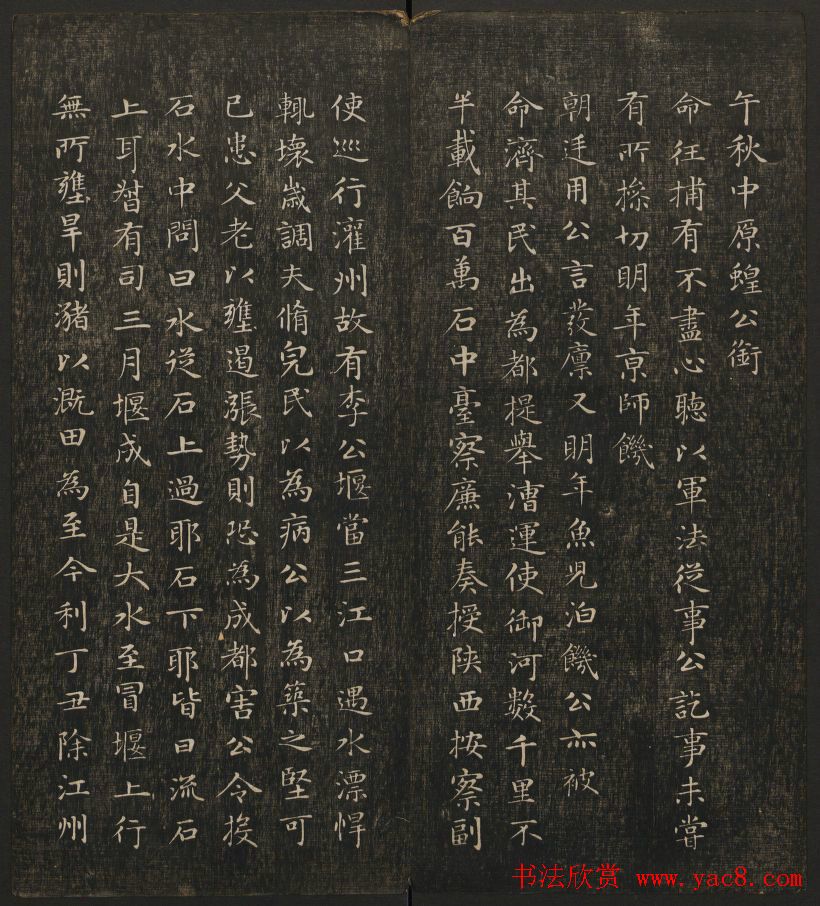 午秋中原蝗公銜
命往捕有不盡心聽以軍法從事公訖事未嘗
有所撓切明年京師饑
朝廷用公言發廩又明年魚兒泊饑公亦被
命濟其民出為都提舉漕運使御河數千里不
半載餉百萬石中臺察廉能奏授陕西按察副
使巡行灌州故有李公堰當三江口遇水漂悍
輒壞歲調夫脩完民以為病公以為築之堅可
已患父老以壅遏漲勢則恐為成都害公令投
石水中問曰水從石上過耶石下耶皆曰流石
上耳督有司三月堰成自是大水至冒堰上行
無所壅旱則瀦以溉田為至今利丁丑除江州
书法欣赏 www.yac8.com